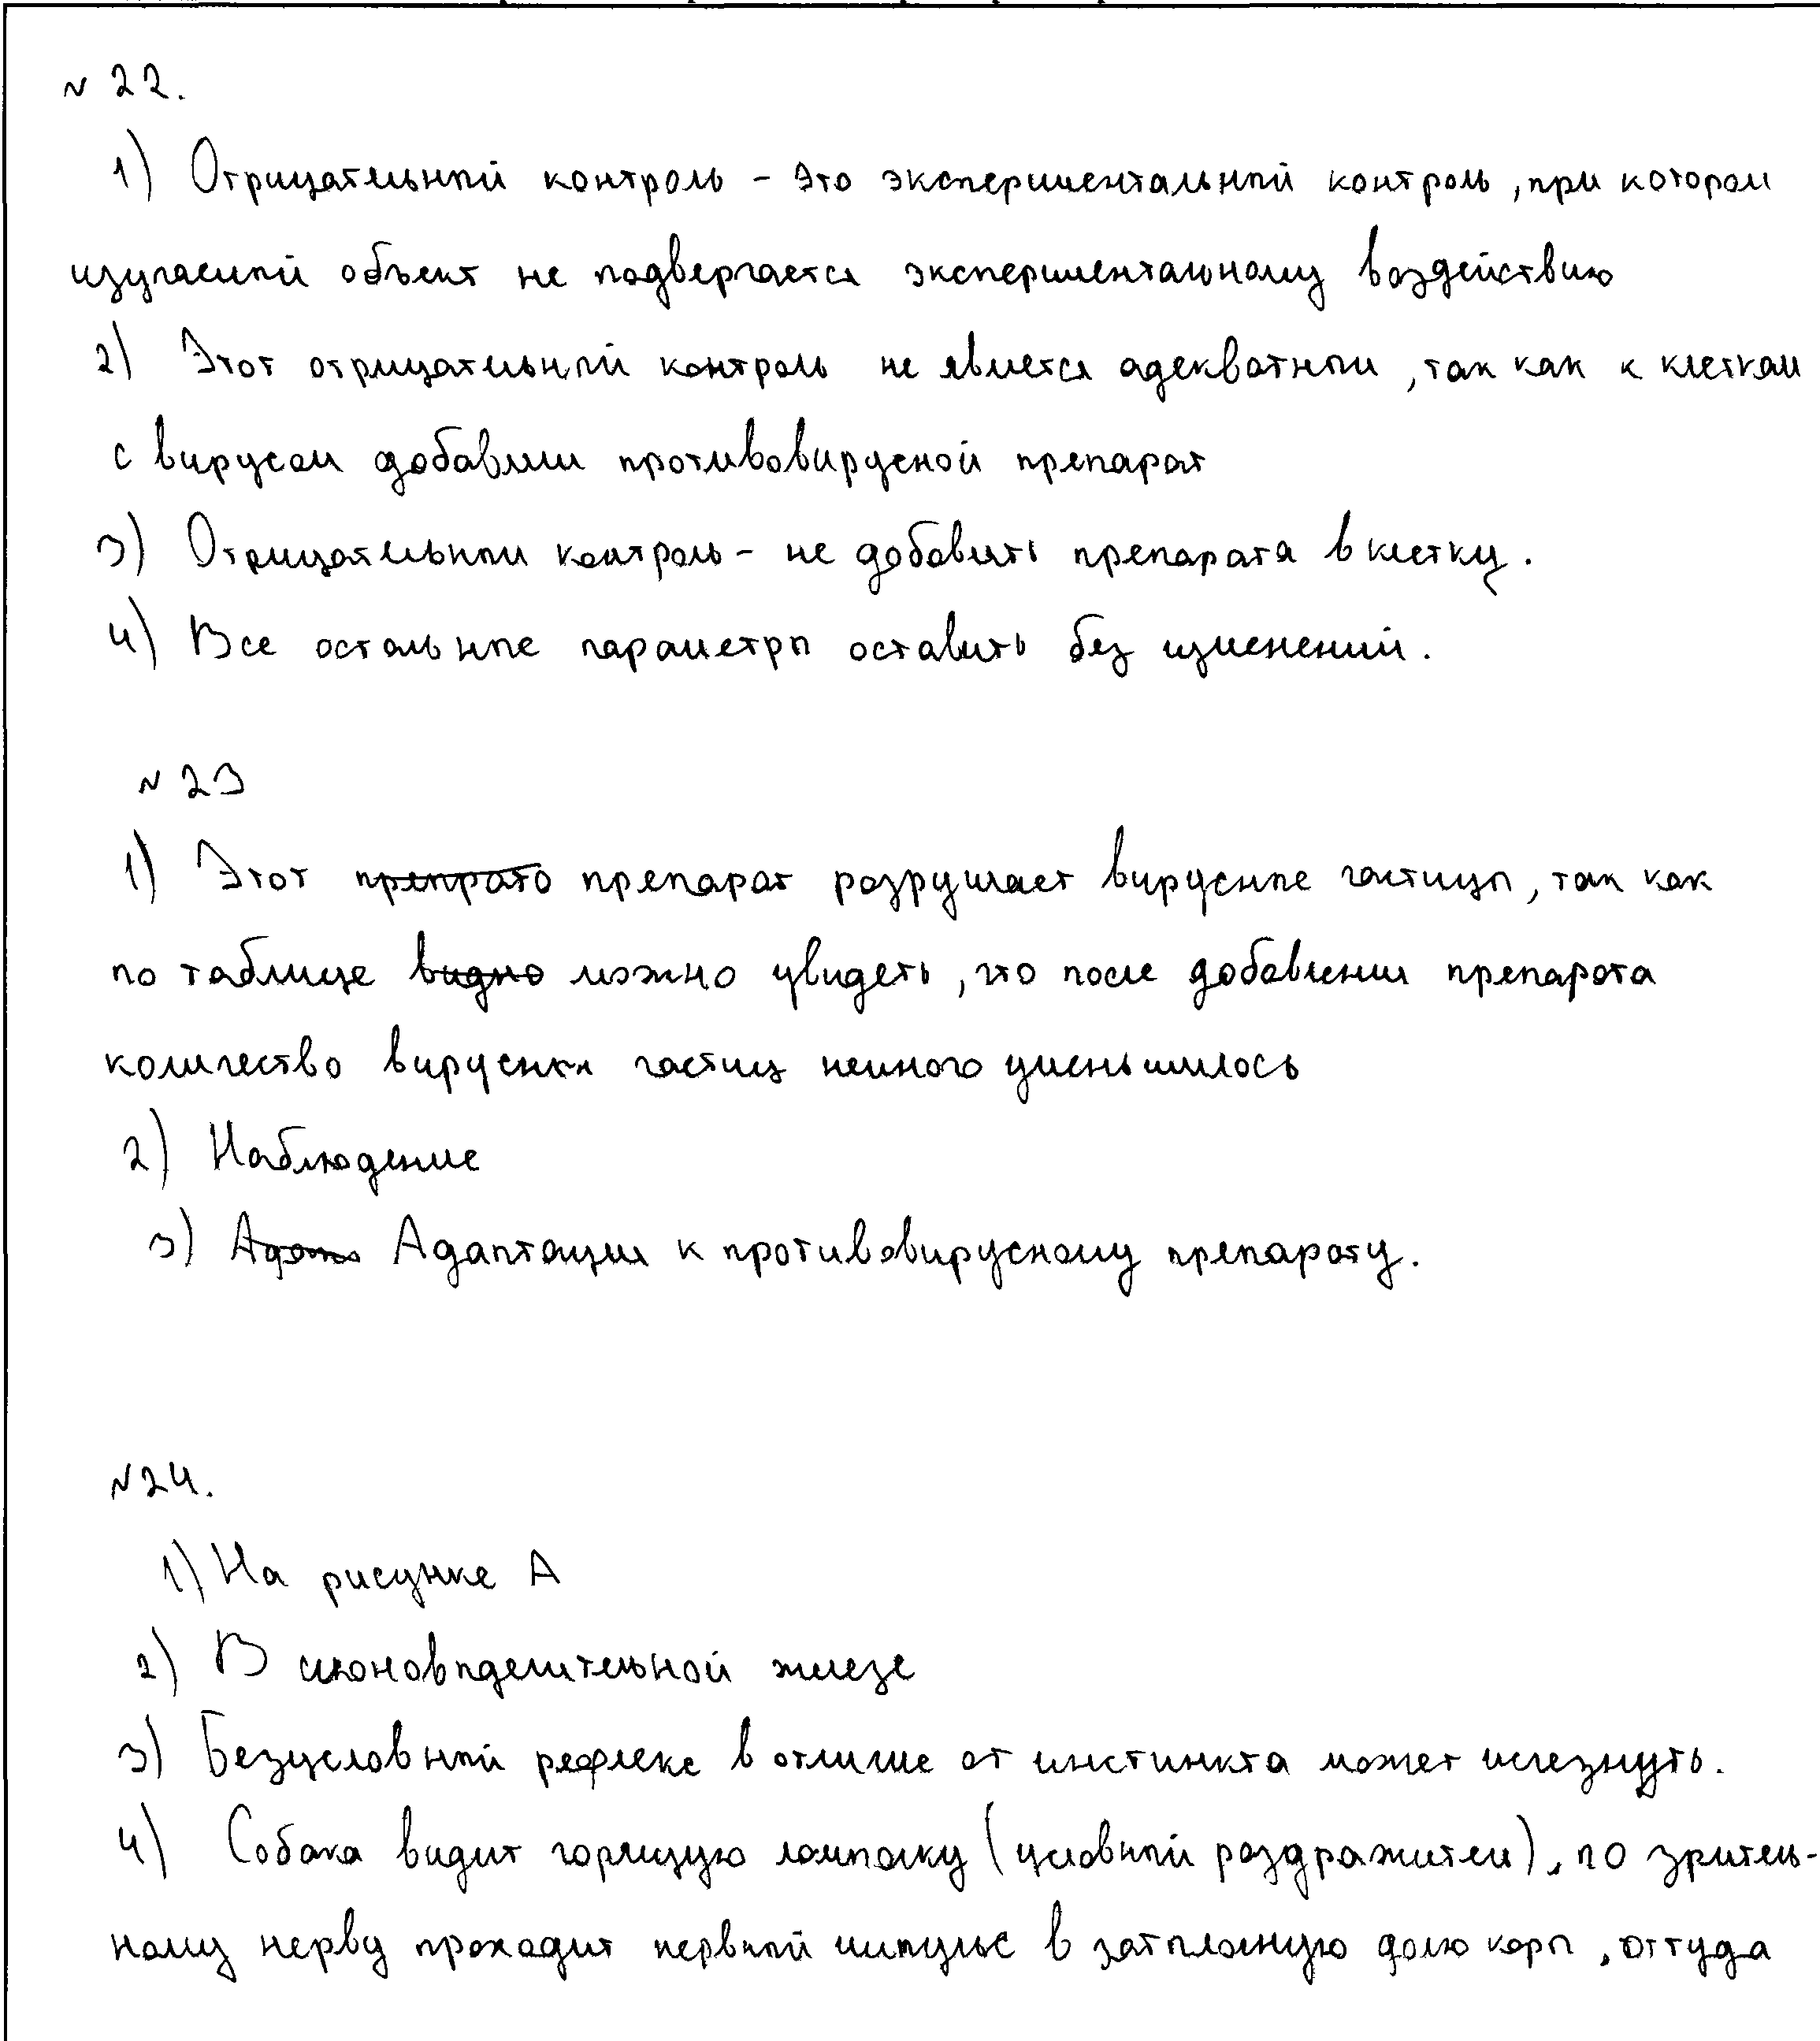 № 22.
1) Отрицательный контроль - это экспериментальный контроль, при котором
изучаемый объект не подвергается экспериментальному воздействию
2) Этот отрицательный контроль не является адекватным, так как к клеткам
с вирусом добавили противовирусной препарат
3) Отрицательный контроль - не добавить препарата в клетку.
4) Все остальные параметры оставить без изменений.
№ 23
1) Этот препрато препарат разрушает вирусные частицы, так как
по таблице видно можно увидеть, что после добавления препарата
количество вирусных частиц немного уменьшилось
2) Наблюдение
3) Адап Адаптация к противовирусному препарату.
№ 24.
1) На рисунке А
2) В слюновыделительной железе
3) Безусловный рефлекс в отличие от инстинкта может исчезнуть.
4) Собака видит горящую лампочку (условный раздражитель), по зритель-
ному нерву проходит нервный импульс в затылочную долю коры, оттуда